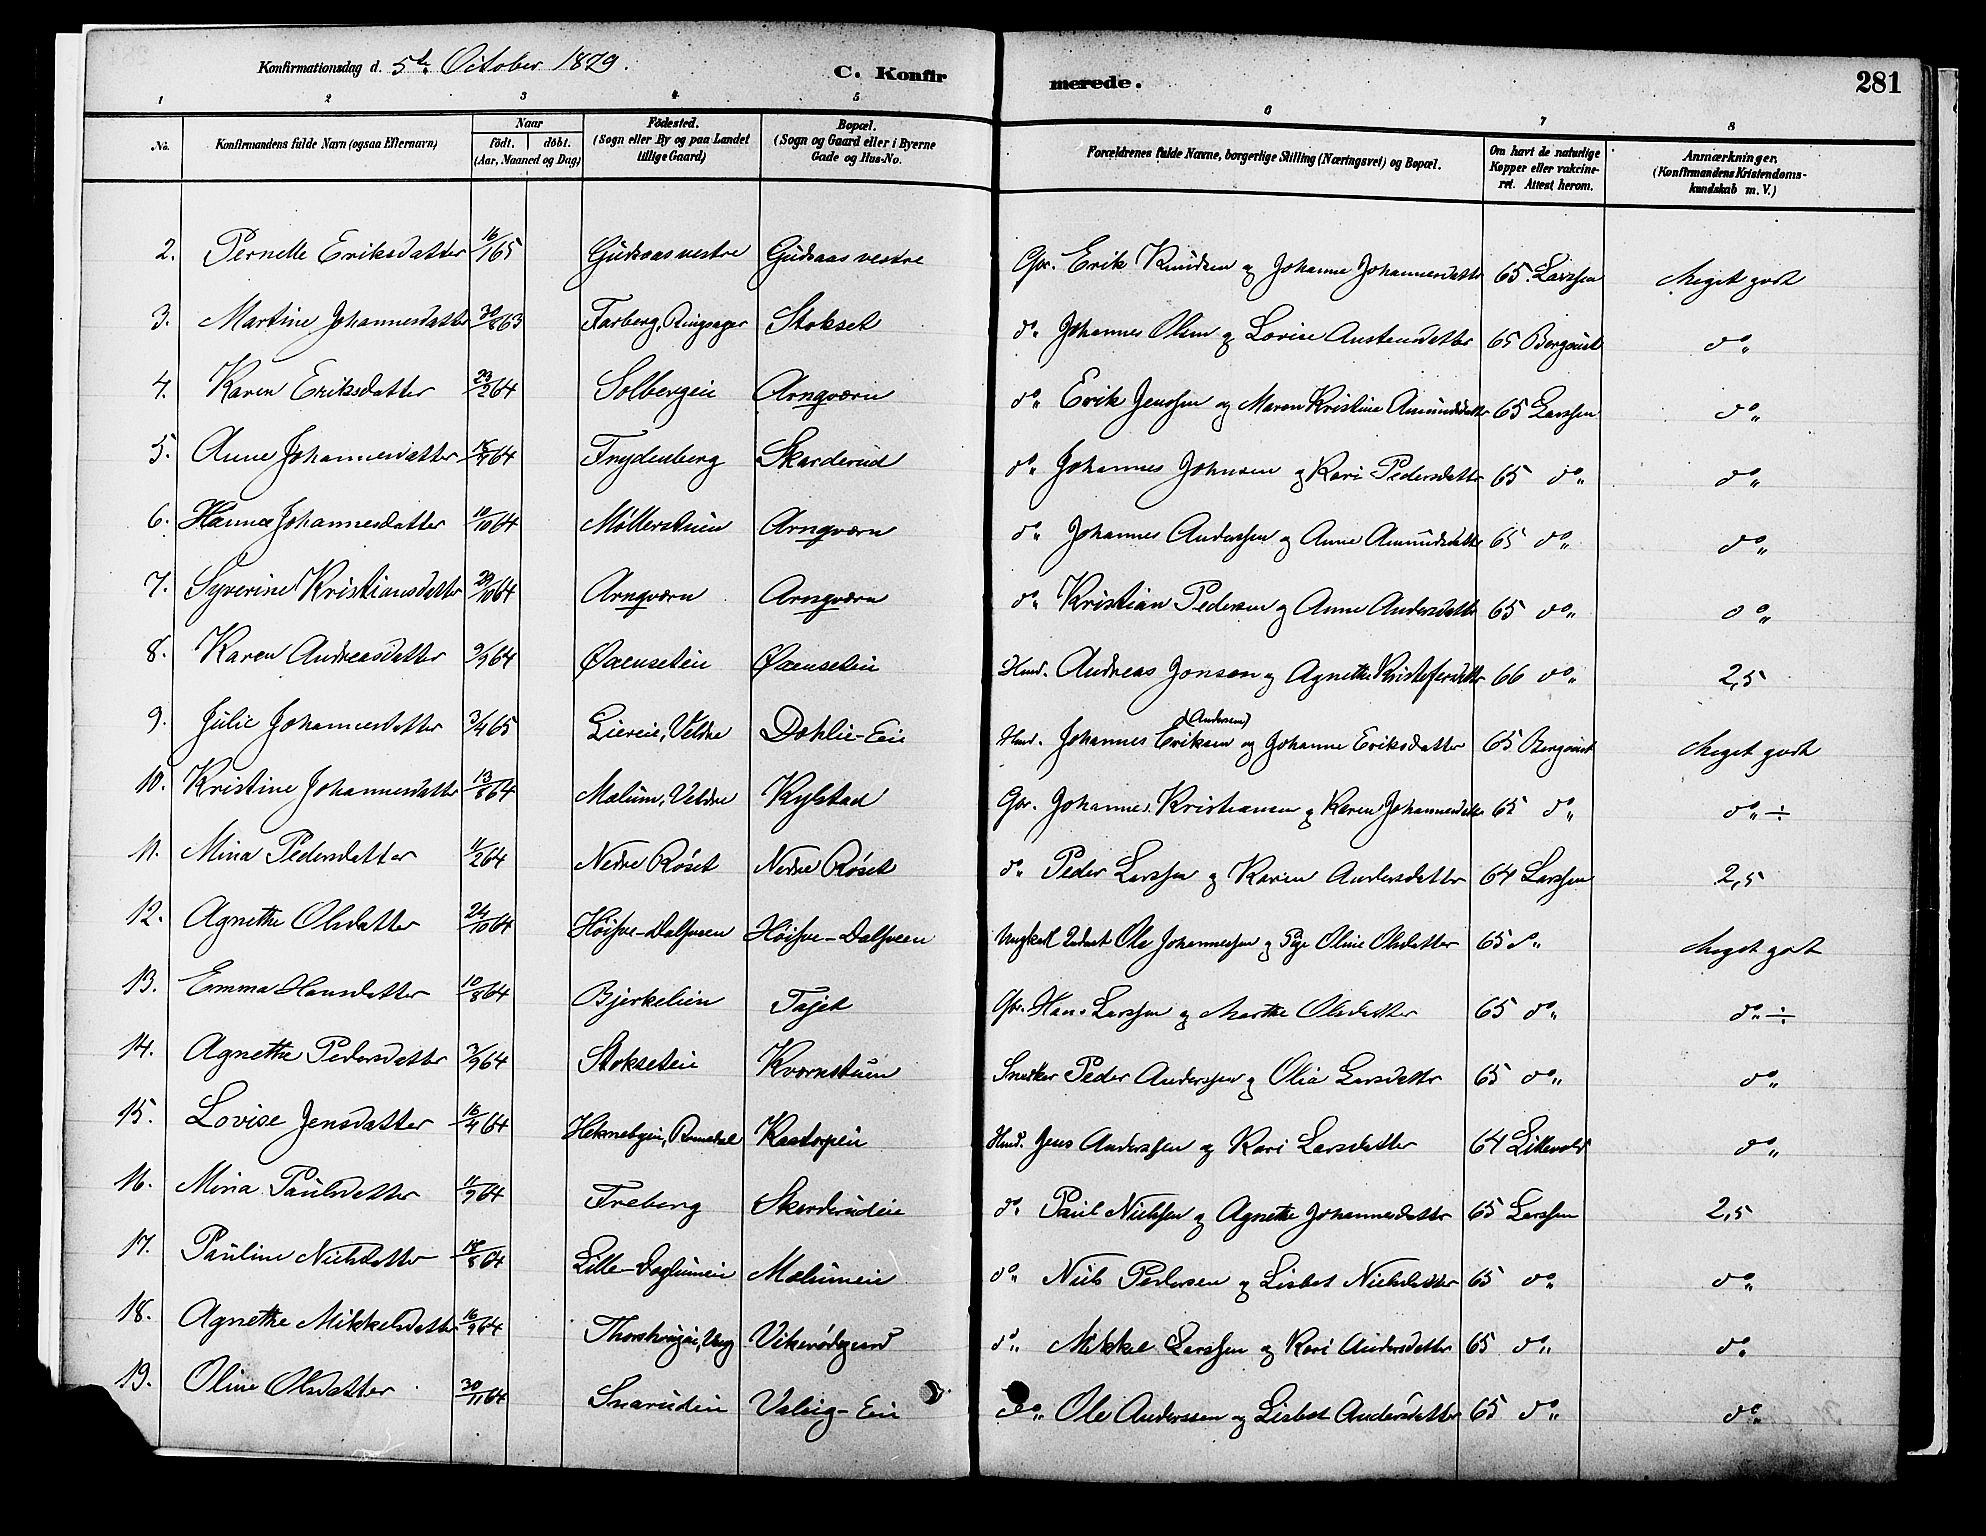 Konfirmationsdag d. 5te October 1879.
C. Konfirmerede.
281
1 2 3 4 5 6 7 8
No. Konfirmandens fulde Navn (ogsaa Efternavn) Naar født. døbt. (Aar, Maaned og Dag) Fødested. (Sogn eller By og paa Landet tillige Gaard) Bopæl. (Sogn og Gaard eller i Byerne Gade og Hus-No. Forældrenes fulde Navne, borgerlige Stilling (Næringsvei) og Bopæl. Om havt de naturlige Kopper eller vakcineret. Attest herom. Anmærkninger. (Konfirmandens Kristendomskundskab m. V.)
2. Pernelle Eriksdatter 16/1 65 Gudsaas vestre Gudsaas vestre Gbr. Erik Knudsen og Johanne Johannesdatter 65 Larssen Meget godt
3. Martine Johannesdatter 30/8 63 Farberg, Ringsager Stokset do„ Johannes Olsen og Lovise Austensdatter 65 Bergquist do„
4. Karen Eriksdatter 23/2 64 Solbergeie Arnqværn do„ Erik Jenssen og Maren Kristine Amundsdatter 65 Larssen do„
5. Anne Johannesdatter 64 Frydenberg Skarderud do„ Johannes Johnsen og Kari Pedersdatter 65 do„ do„
6. Hanna Johannesdatter 10/10 64 Møllerstuen Arnqværn do„ Johannes Anderssen og Anne Amundsdatter 65 do„ do„
7. Syverine Kristiansdatter 29/10 64 Arnqværn Arnqværn do„ Kristian Pedersen og Anne Andersdatter 65 do„ do„
8. Karen Andreasdatter 9/9 64 Øxenseteie Øxenseteie Hmd. Andreas Jonsen og Agnethe Kristofersdatter 66 do„ 2,5
9. Julie Johannesdatter 3/4 65 Liereie, Veldre Dohlie-Eie Hmd. Johannes Eriksen (Andersen) og Johanne Eriksdatter 65 Bergquist Meget godt
10. Kristine Johannesdatter 13/8 64 Mælum, Veldre Kylstad Gbr. Johannes Kristiansen og Karen Johannesdatter 65 do„ do„ ÷
11. Mina Pedersdatter 11/2 64 Nedre Røset Nedre Røset do„ Peder Larssen og Karen Andersdatter 64 Larssen 2,5
12. Agnethe Olsdatter 24/10 64 Høisve-Dalsveen Høisve-Dalsveen Ungkarl Ole Johannessen og Pige Oline Olsdatter 65 do„ Meget godt
13. Emma Hansdatter 10/8 64 Bjerkelien Tajet Gbr. Hans Larssen og Marthe Olsdatter 65 do„ do„ ÷
14. Agnethe Pedersdatter 3/9 64 Stokseteie Kvornstuen Snedker Peder Anderssen og Olia Larsdatter 65 do„ do„
15. Lovise Jensdatter 16/4 64 Heknebyeie, Romedal Kastorpeie Hmd. Jens Anderssen og Kari Larsdatter 64 Lillevold do„
16. Mina Paulsdatter 11/9 64 Freberg Skarderudeie do„ Paul Nielssen og Agnethe Johannesdatter 65 Larssen 2,5
17. Pauline Nielsdatter 18/8 64 Lille-Daglumeie Mælumeie do„ Niels Pedersen og Lisbet Nielsdatter 65 do„ do„
18. Agnethe Mikkelsdatter 16/9 64 Vikerødegard do„ Mikkel Larssen og Kari Andersdatter 65 do„ do„
19. Oline Olsdatter 30/11 64 Snarudeie Valsig-Eie do„ Ole Anderssen og Lisbet Andersdatter 65 do„ do„